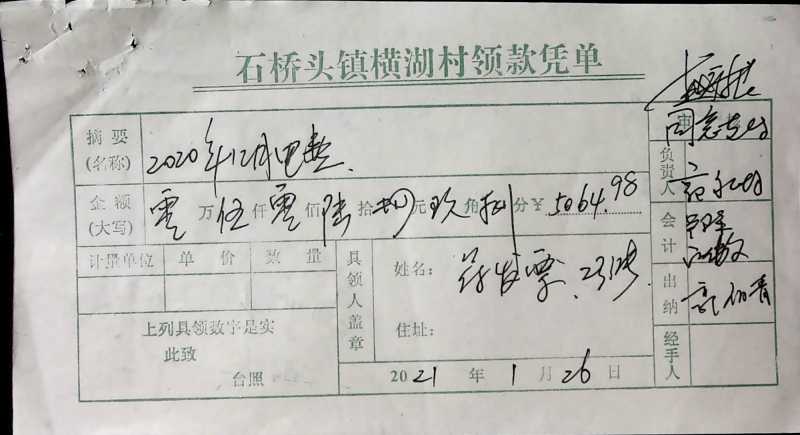 石桥头镇横湖村领款凭单
摘要
(名称)
2020年12月电费.
金额
(大写)
零万伍仟零佰陆拾肆元玖角捌分¥5064.98
计量单位 单价 数量
上列具领数字是实
此致
台照
具领人盖章
姓名: 发票
住址:
2021年1月26日
同意支付
负责人
会计
出纳
经手人